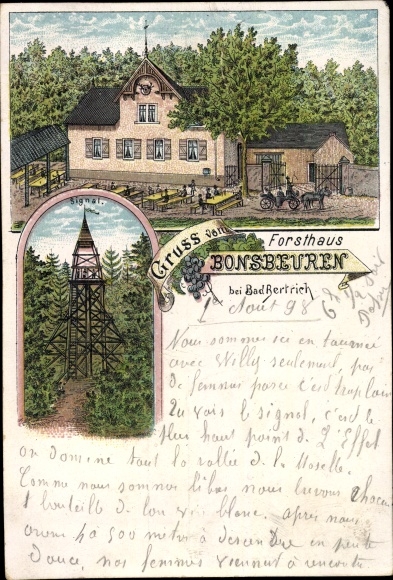 Signal.
Gruss vom
Forsthaus
BONSBEUREN
bei Bad Bertrich
1er Août 98
Nous sommes ici en tournée
avec Willy seulement, pas
de femmes parce c'est trop loin
Tu vois le signal, c'est le
plus haut point de L'Eiffel
on domine tout la vallée de la Moselle.
Comme nous sommes là bas nous buvons chacun
1 bouteille de bon vin blanc. après nous
avons 4 à 500 mètres à descendre en pente
douce, nos femmes viennent à rencontre